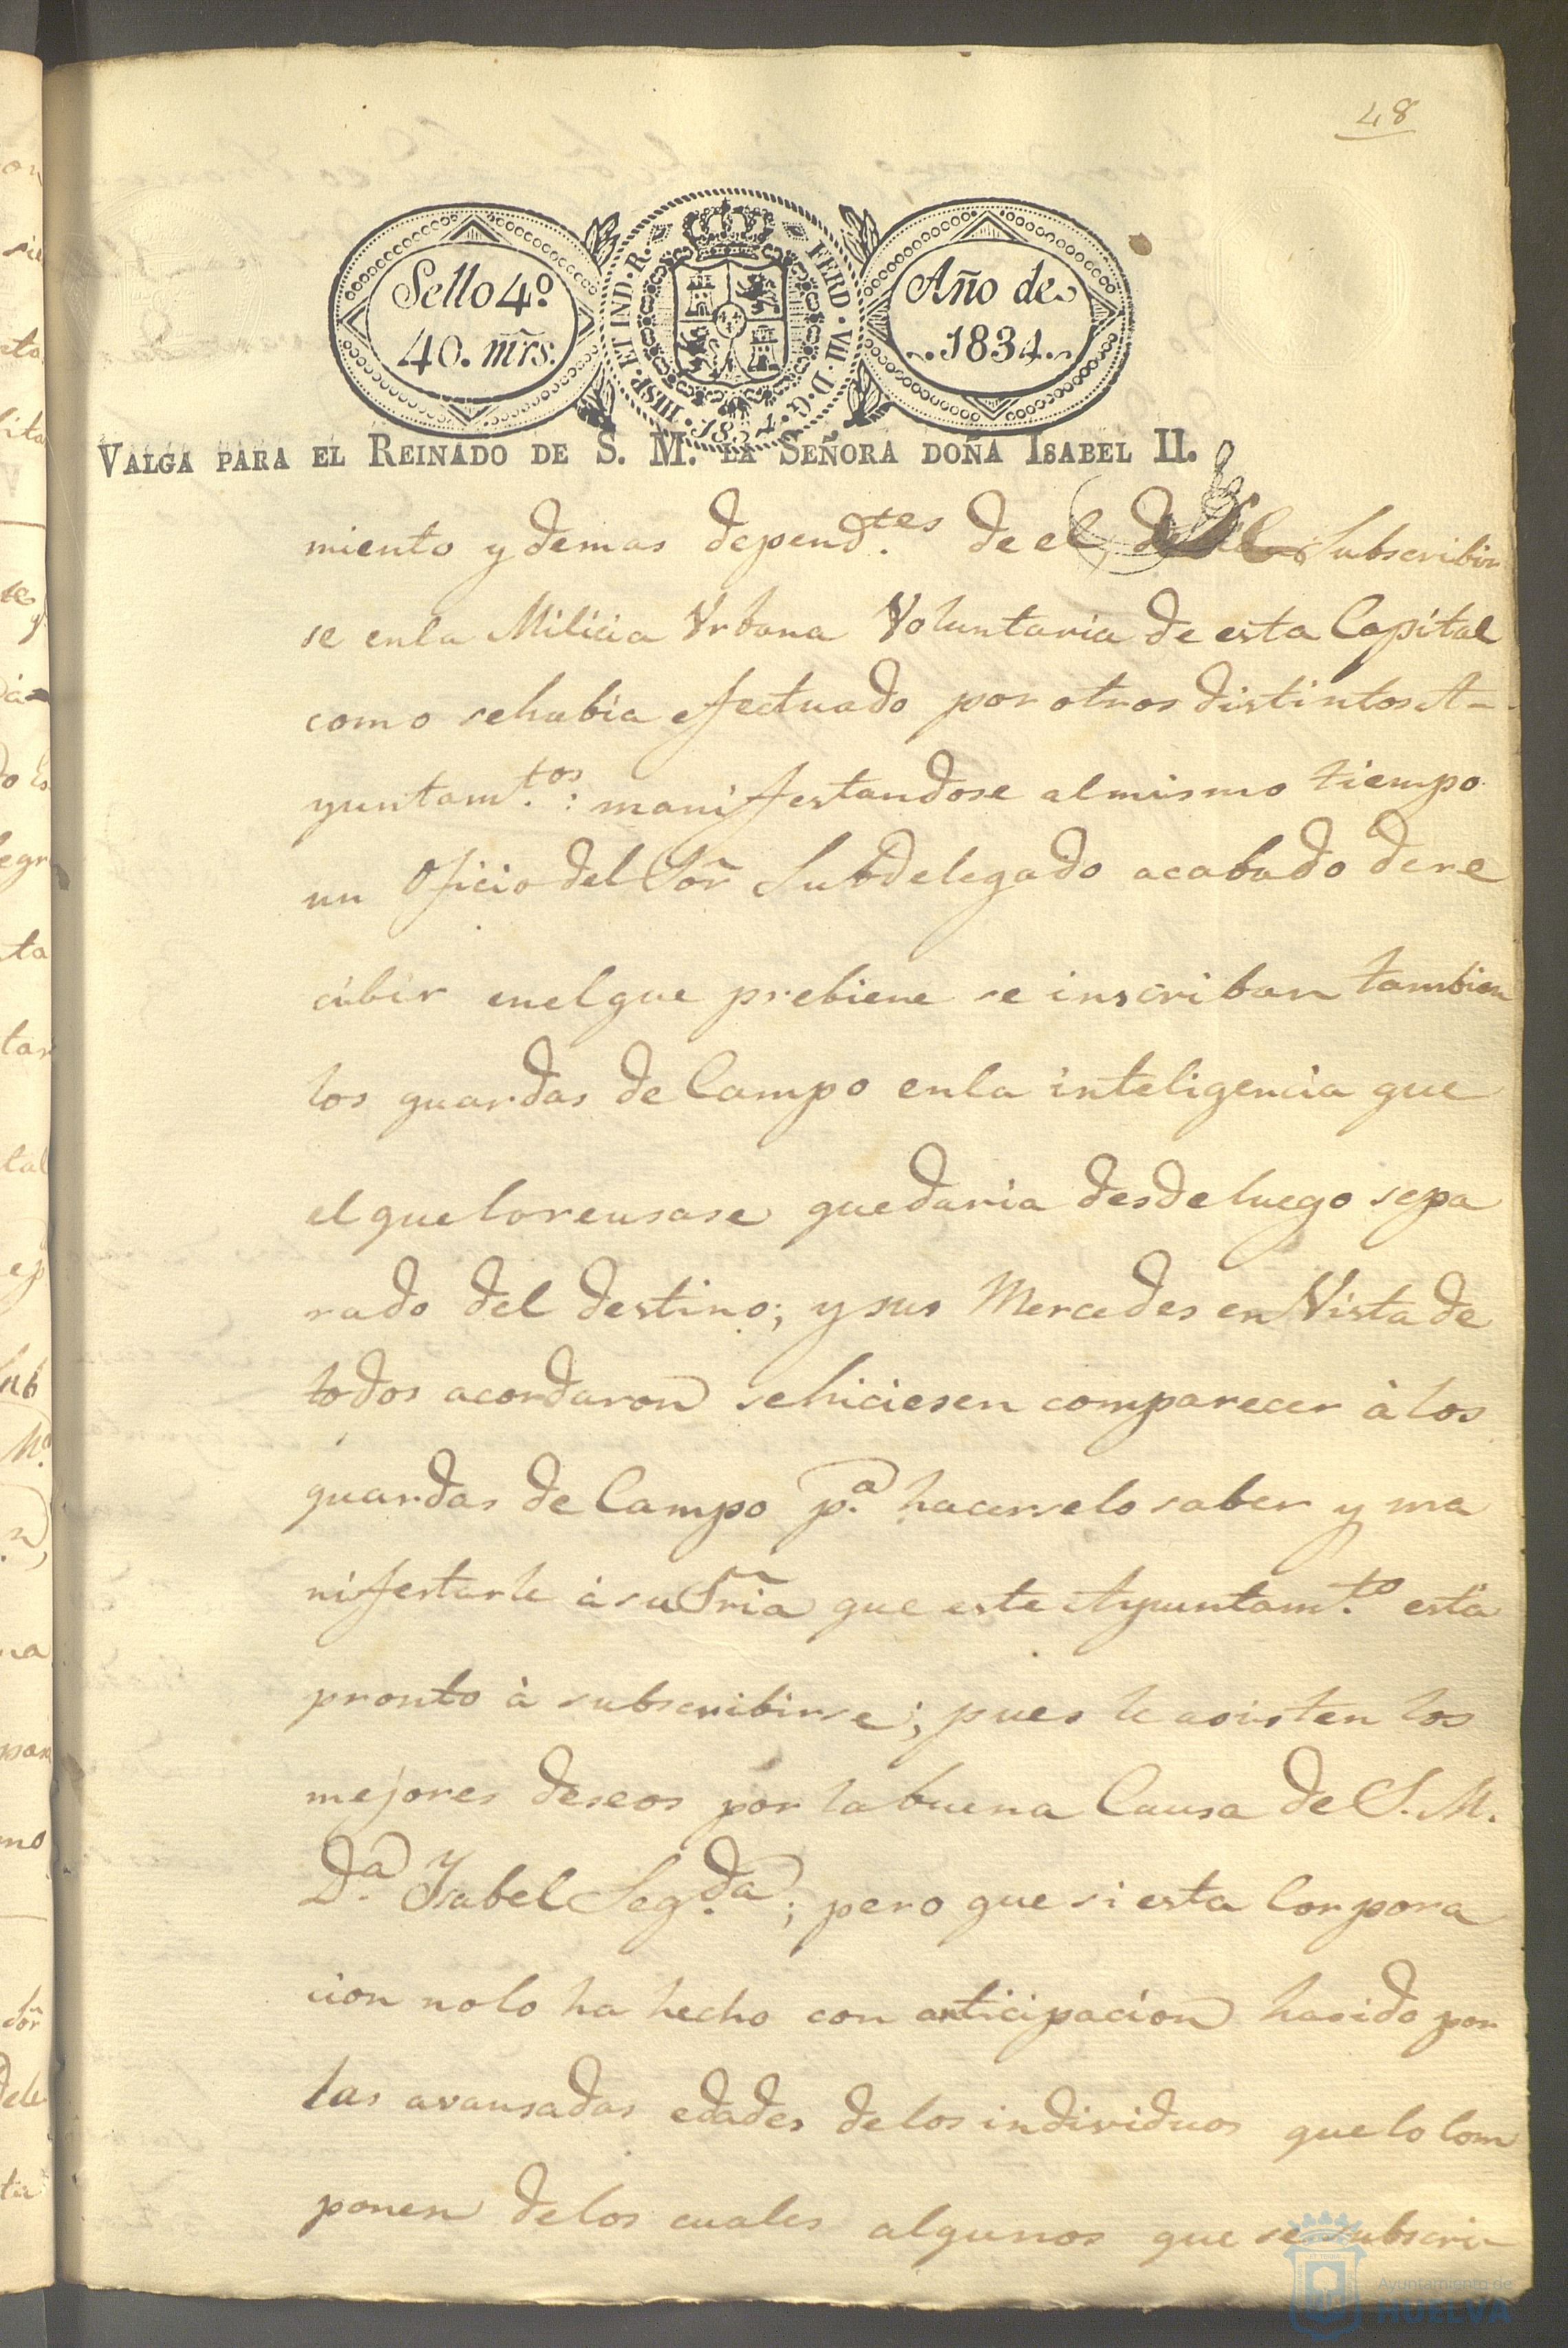 48
Sello 4º
40. mrs.
HISP. ET IND. R.
FERD. VII. D. G.
1834.
Año de
1834.
VALGA PARA EL REINADO DE S. M. LA SEÑORA DOÑA ISABEL II.
miento y demas depend.tes de el, Subscribir
se enla Milicia Vrbana Voluntaria de esta Capital
como sehabia efectuado por otros distintos A-
yuntam.tos: manifestandose almismo tiempo
un Oficio del Sor Subdelegado acabado dere
cibir enelque prebiene se inscriban tambien
los guardas de Campo enla inteligencia que
el que lo reusase quedaria desde luego sepa
rado del destino; y sus Mercedes en Vista de
todos acordaron sehiciesen comparecer à los
guardas de Campo p.a hacerselo saber y ma
nifestarle à su Sria que este Ayuntam.to está
pronto à subscribirse; pues le asisten los
mejores deseos por la buena Causa de S. M.
D.a Ysabel Seg.da; pero que si esta Corpora
cion nolo ha hecho con anticipacion hasido por
las avansadas edades delos individuos que lo Com
ponen delos cuales algunos que se subscri-
Ayuntamiento de
HUELVA